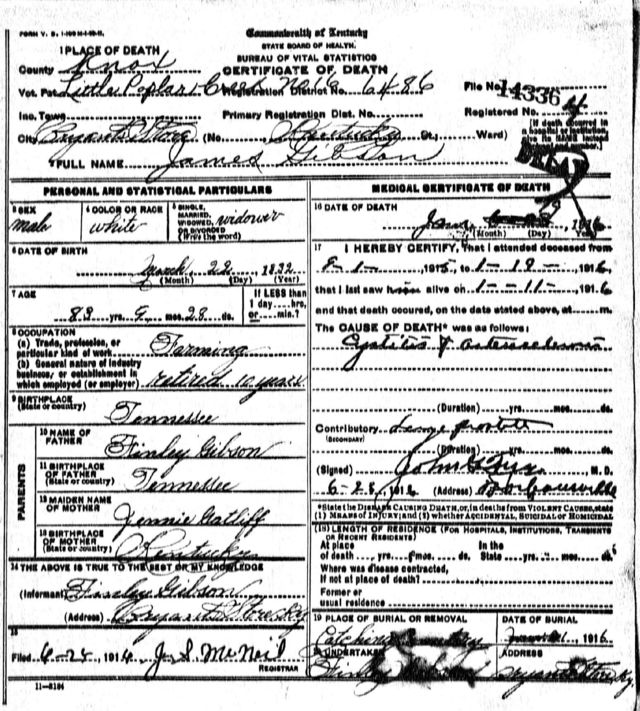 FORM V. S. 1-
Commonwealth of Kentucky
STATE BOARD OF HEALTH.
BUREAU OF VITAL STATISTICS
CERTIFICATE OF DEATH
1 PLACE OF DEATH
County Knox
Vot. Pct. Little Poplar Creek No 16 Registration District No. 6486
File No. 14336
Inc. Town Primary Registration Dist. No.
Registered No. 4
City Bryants Store (No. Kentucky St., Ward)
(If death occurred in
a hospital or institution,
give its NAME instead
of street and number.)
2 FULL NAME James Gibson
DELAYED
PERSONAL AND STATISTICAL PARTICULARS
3 SEX male
4 COLOR OR RACE white
5 SINGLE, MARRIED, WIDOWED, OR DIVORCED (Write the word) widower
6 DATE OF BIRTH
March 22 1832
(Month) (Day) (Year)
7 AGE
83 yrs. 9 mos. 28 ds.
If LESS than
1 day....hrs,
or....min.?
8 OCCUPATION
(a) Trade, profession, or
particular kind of work Farming
(b) General nature of industry
business, or establishment in
which employed (or employer) retired 10 years
9 BIRTHPLACE
(State or country) Tennessee
PARENTS
10 NAME OF
FATHER Finley Gibson
11 BIRTHPLACE
OF FATHER
(State or country) Tennessee
12 MAIDEN NAME
OF MOTHER Jennie Gatliff
13 BIRTHPLACE
OF MOTHER
(State or country) Kentucky
14 THE ABOVE IS TRUE TO THE BEST OF MY KNOWLEDGE
(Informant) Finley Gibson
(Address) Bryants Store Ky
15
Filed 6-25, 1916 J. S. McNeil
REGISTRAR
11-3184
MEDICAL CERTIFICATE OF DEATH
16 DATE OF DEATH
Jan. 19 1916
(Month) (Day) (Year)
17 I HEREBY CERTIFY, That I attended deceased from
8-1-, 1915, to 1-19-, 1916,
that I last saw him alive on 1-11-, 1916
and that death occured, on the date stated above, at m.
The CAUSE OF DEATH* was as follows:
Cystitis &
(Duration) yrs. mos. ds.
Contributory
(SECONDARY)
(Duration) yrs. mos. ds.
(Signed) John M. D.
6-28, 1916 (Address) Barbourville
*State the DISEASE CAUSING DEATH, or, in deaths from VIOLENT CAUSES, state
(1) MEANS OF INJURY; and (2) whether ACCIDENTAL, SUICIDAL OR HOMICIDAL
(18) LENGTH OF RESIDENCE (FOR HOSPITALS, INSTITUTIONS, TRANSIENTS
OR RECENT RESIDENTS)
At place In the
of death yrs. mos. ds. State yrs. mos. ds.
Where was disease contracted,
if not at place of death?
Former or
usual residence
19 PLACE OF BURIAL OR REMOVAL DATE OF BURIAL
Cemetery 1916
20 UNDERTAKER ADDRESS
Finley Bryants Store Ky.